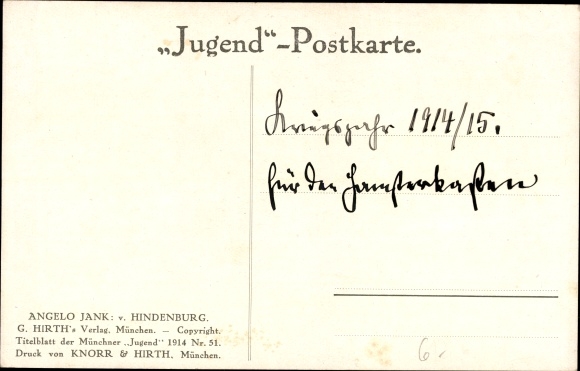 „Jugend“-Postkarte.
Kriegsjahr 1914/15.
für den Hamsterkasten
ANGELO JANK: v. HINDENBURG.
G. HIRTH's Verlag, München. — Copyright.
Titelblatt der Münchner „Jugend“ 1914 Nr. 51.
Druck von KNORR & HIRTH, München.
6.